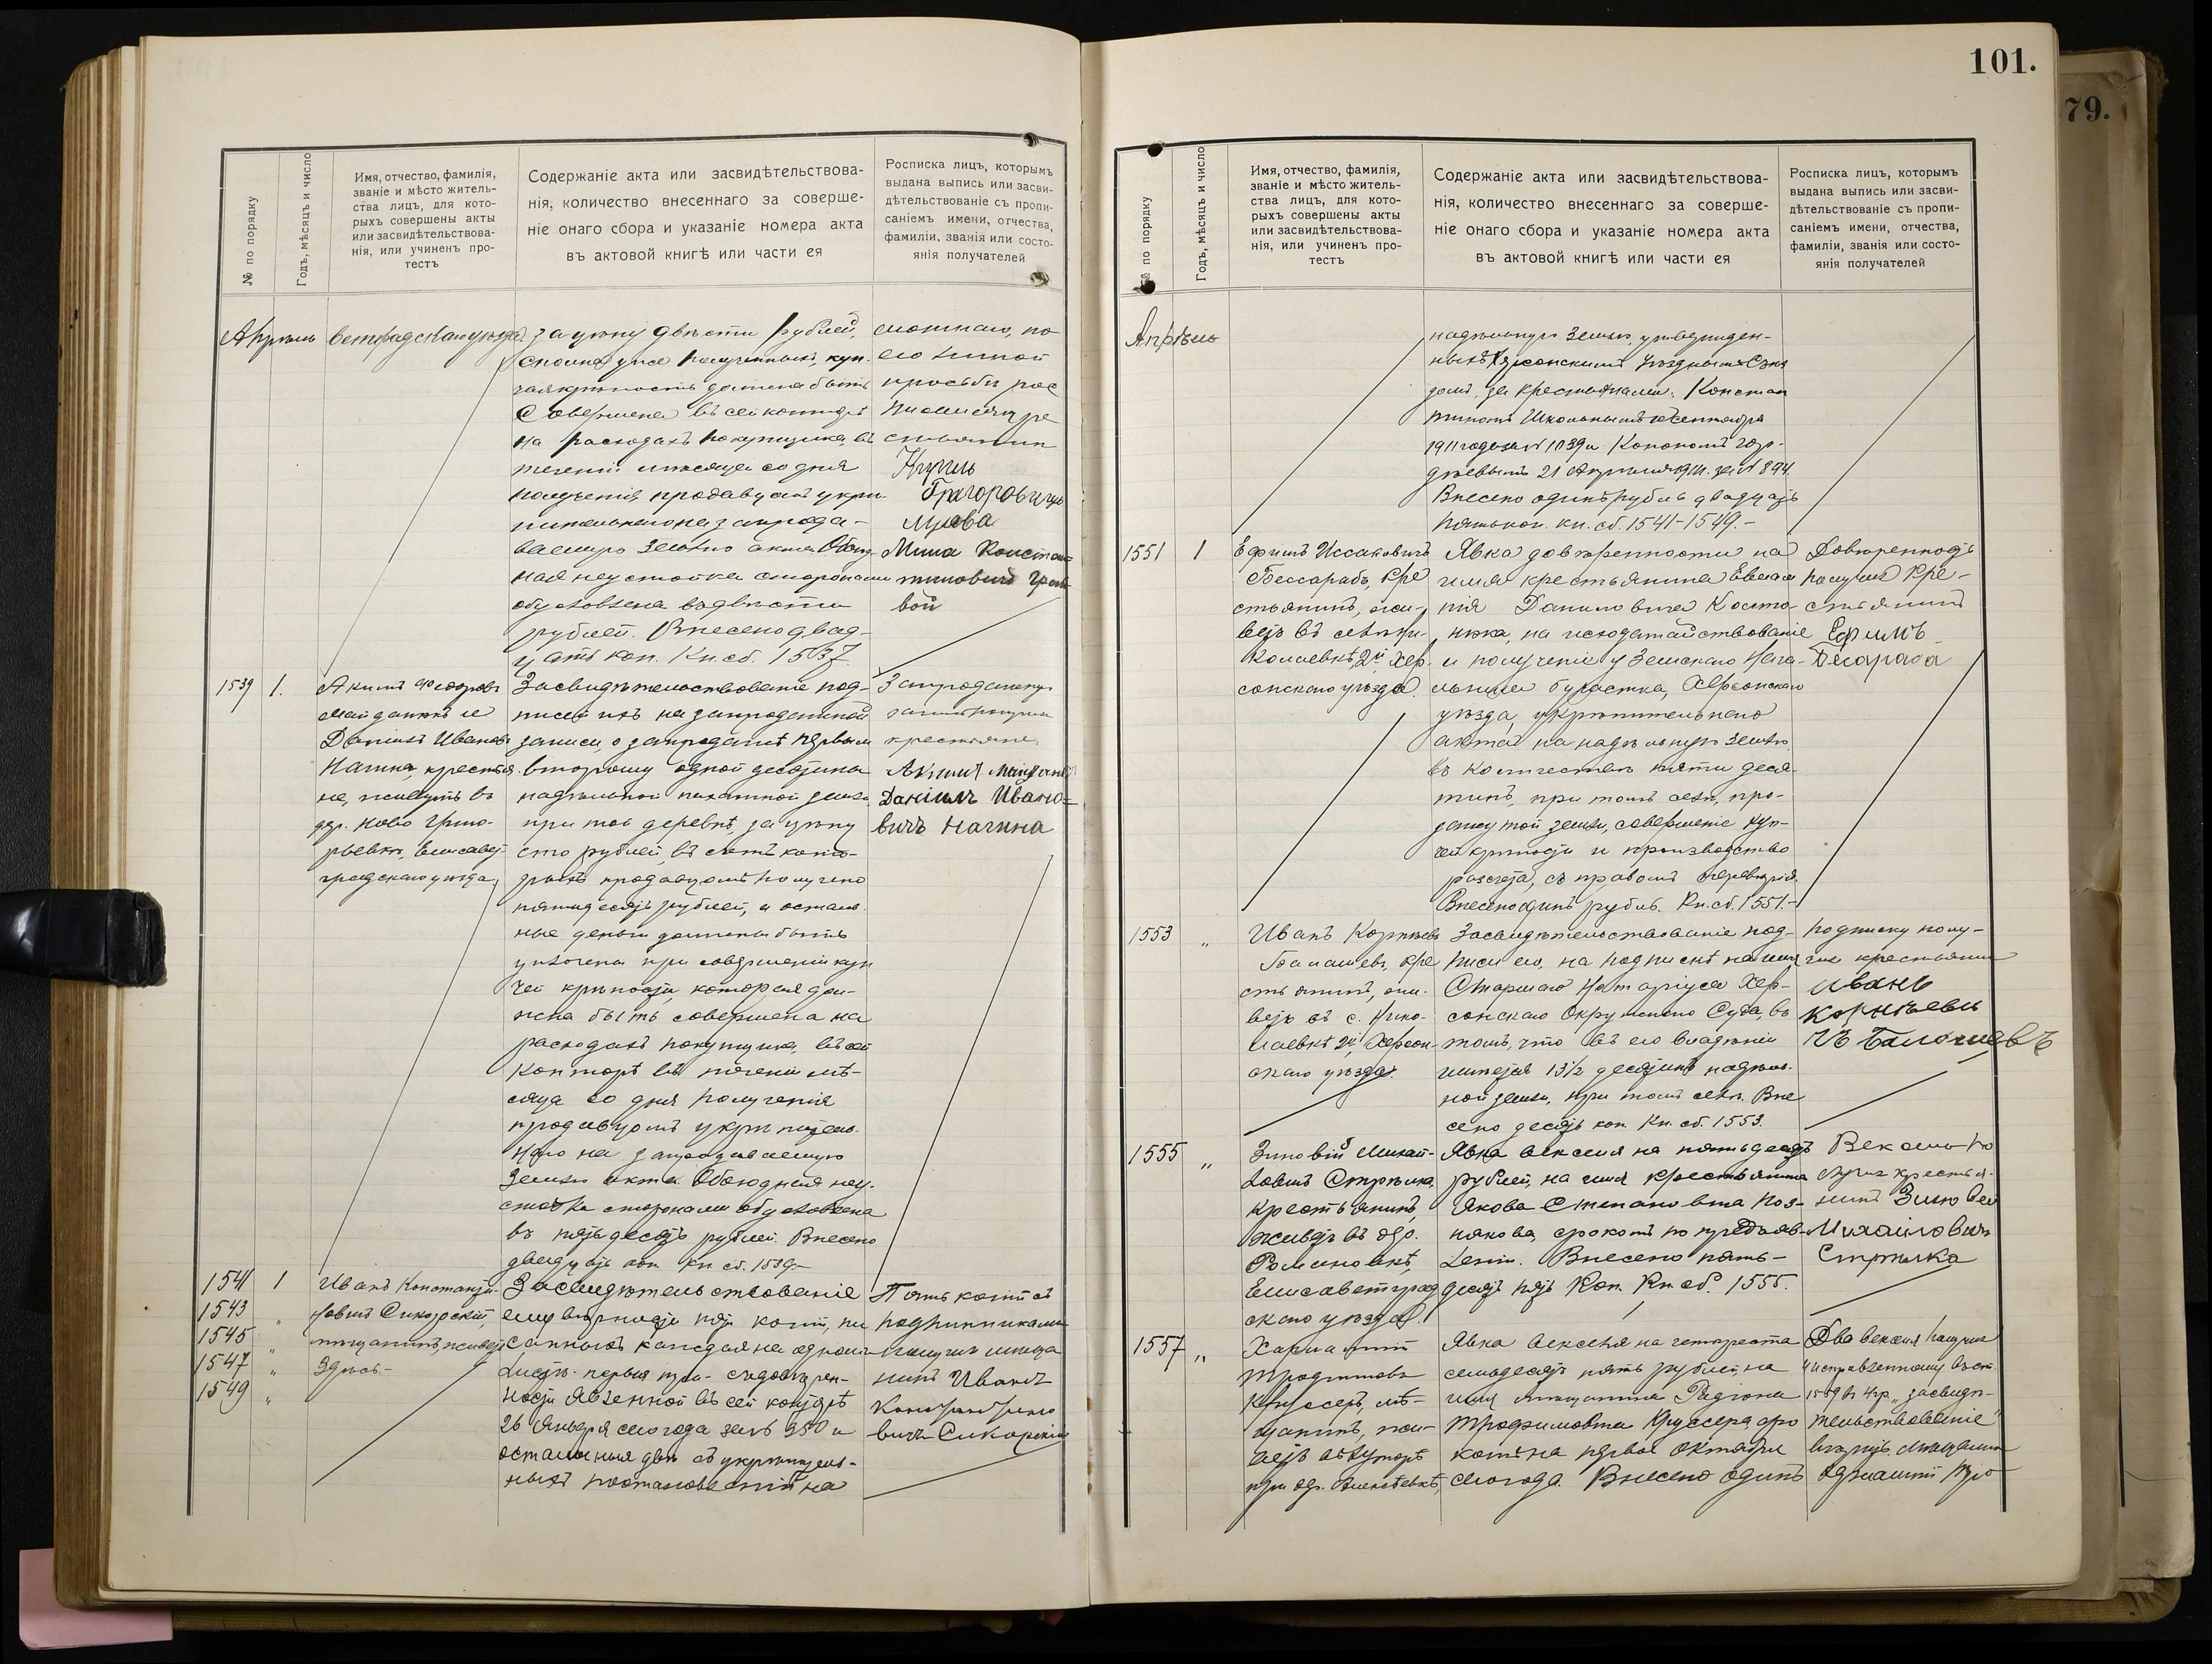 101.
79.
№ по порядку
Годъ, мѣсяцъ и число
Имя, отчество, фамилія,
званіе и мѣсто житель-
ства лицъ, для кото-
рыхъ совершены акты
или засвидѣтельствова-
нія, или учиненъ про-
тестъ
Содержаніе акта или засвидѣтельствова-
нія, количество внесеннаго за соверше-
ніе онаго сбора и указаніе номера акта
въ актовой книгѣ или части ея
Росписка лицъ, которымъ
выдана выпись или засви-
дѣтельствованіе съ пропи-
саніемъ имени, отчества,
фамиліи, званія или состо-
янія получателей
Апрѣль
ветградскаго уѣзда
за цѣну двѣсти рублей,
сполна уже полученныхъ, куп-
чая крѣпость должна быть
совершена въ сей конторѣ
на расходахъ покупщика, въ
теченіи мѣсяца со дня
полученія продавцомъ укрѣ-
пительнаго на запрода-
ваемую землю акта. Обоюд-
ная неустойка сторонами
обусловлена въ двѣсти
рублей. Внесено двад-
цать коп. Кн. сб. 1537
его личной
просьбѣ рос
Григоровичъ
Миша Констан-
тиновичъ
вой
1539
1.
Акимъ Федоровъ
Майданюкъ и
Даніилъ Ивановъ
Нагина, крестья-
не, живутъ въ
дер. Ново Григо-
рьевкѣ, Елисавет-
градскаго уѣзда,
Засвидѣтельствованіе под-
писей ихъ на запродажной
записи, о запродажѣ первымъ
второму одной десятины
надѣльной пахатной земли
при той деревнѣ, за цѣну
сто рублей, въ счетъ кото-
рыхъ продавцомъ получено
пятьдесятъ рублей, а осталь-
ные деньги должны быть
уплочены при совершеніи куп
чей крѣпости, которая дол-
жна быть совершена на
расходахъ покупщика, въ сей
конторѣ въ теченіи мѣ-
сяца со дня полученія
продавцомъ укрѣпитель-
наго на запродаваемую
землю акта. Обоюдная неу-
стойка сторонами обусловлена
въ пятьдесятъ рублей. Внесено
двадцать коп. Кн. сб. 1539.-
Запродажную
крестьяне
Акимъ Майданюкъ
Даніилъ Ивано-
вичъ Нагина
1541
1543
1545
1547
1549
1
"
"
"
"
Иванъ Константи-
новичъ Сикорскій,
мѣщанинъ, живетъ
здѣсь.-
Засвидѣтельствованіе
ему вѣрности пяти копій, пи
санныхъ каждая на одномъ
листѣ: первыя три - съ довѣрен-
ности явленной въ сей конторѣ
26 Января сего года за № 350 и
остальныя двѣ съ укрѣпитель-
ныхъ постановленій на
Пять копій съ
подлинниками
получилъ мѣща
нинъ Иванъ
Константино
вичъ Сикорскій
№ по порядку
Годъ, мѣсяцъ и число
Имя, отчество, фамилія,
званіе и мѣсто житель-
ства лицъ, для кото-
рыхъ совершены акты
или засвидѣтельствова-
нія, или учиненъ про-
тестъ
Содержаніе акта или засвидѣтельствова-
нія, количество внесеннаго за соверше-
ніе онаго сбора и указаніе номера акта
въ актовой книгѣ или части ея
Росписка лицъ, которымъ
выдана выпись или засви-
дѣтельствованіе съ пропи-
саніемъ имени, отчества,
фамиліи, званія или состо-
янія получателей
Апрѣль
надѣльную землю, утвержден-
ныхъ Херсонскимъ Уѣзднымъ Съѣз
домъ, за крестьянами: Констан
тиномъ Школьнымъ Сентября
1911 года за № 1039 и Конономъ
21 Апрѣля за № 894.
Внесено одинъ рубль двадцать
пять коп. кн. сб. 1541-1549.-
1551
1
Ефимъ Иссаковичъ
Бессарабъ, кре
стьянинъ, жи-
ветъ въ селѣ Ни-
колаевкѣ 2й Хер-
сонскаго уѣзда.
Явка довѣренности на
имя крестьянина Евлам
пія Даниловича Косте-
нюка, на исходатайствованіе
и полученіе у Земскаго Нача-
льника 6 участка, Херсонскаго
уѣзда, укрѣпительнаго
акта на надѣльную землю,
въ количествѣ пяти деся-
тинъ, при томъ селѣ, про-
дажу той земли, совершеніе куп-
чей крѣпости и производство
разсчета, съ правомъ передовѣрія.
Внесено одинъ рубль. Кн. сб. 1551.-
Довѣренность
получилъ кре-
стьянинъ
Ефимъ
Бесарабa
1553
"
Иванъ Корнѣевъ
Балашевъ, кре
стьянинъ, жи-
ветъ въ с. Нико-
лаевкѣ 2й, Херсон-
скаго уѣзда.
Засвидѣтельствованіе под-
писи его, на подпискѣ на имя
Старшаго Нотаріуса Хер-
сонскаго Окружнаго Суда, въ
томъ, что въ его владѣніи
имѣется 13½ десятинъ надѣль-
ной земли, при томъ селѣ. Вне
сено десять коп. Кн. сб. 1553.
Подписку полу-
чилъ крестьянин
Иванъ
Корнѣеви
чъ Балашевъ
1555
"
Зиновій Михай-
ловичъ Стрѣлка,
крестьянинъ,
живетъ въ дер.
Елисаветград
скаго уѣзда.
Явка векселя на пятьдесятъ
рублей, на имя крестьянина
Якова Степановича Поз-
някова, срокомъ по предъяв-
леніи. Внесено пять-
десятъ пять коп. Кн. сб. 1555.
Вексель по
лучилъ крестья-
нинъ Зиновей
Михаиловичъ
Стрѣлка
1557
"
мѣ-
щанинъ, жи-
ветъ въ хуторѣ
при дер. Алексѣевкѣ,
Явка векселя на четыреста
семьдесятъ пять рублей, на
имя мѣщанина Родіона
Трофимовича Круссера, сро
комъ на первое Октября
сего года. Внесено одинъ
Два векселя получилъ
тельствованіе"